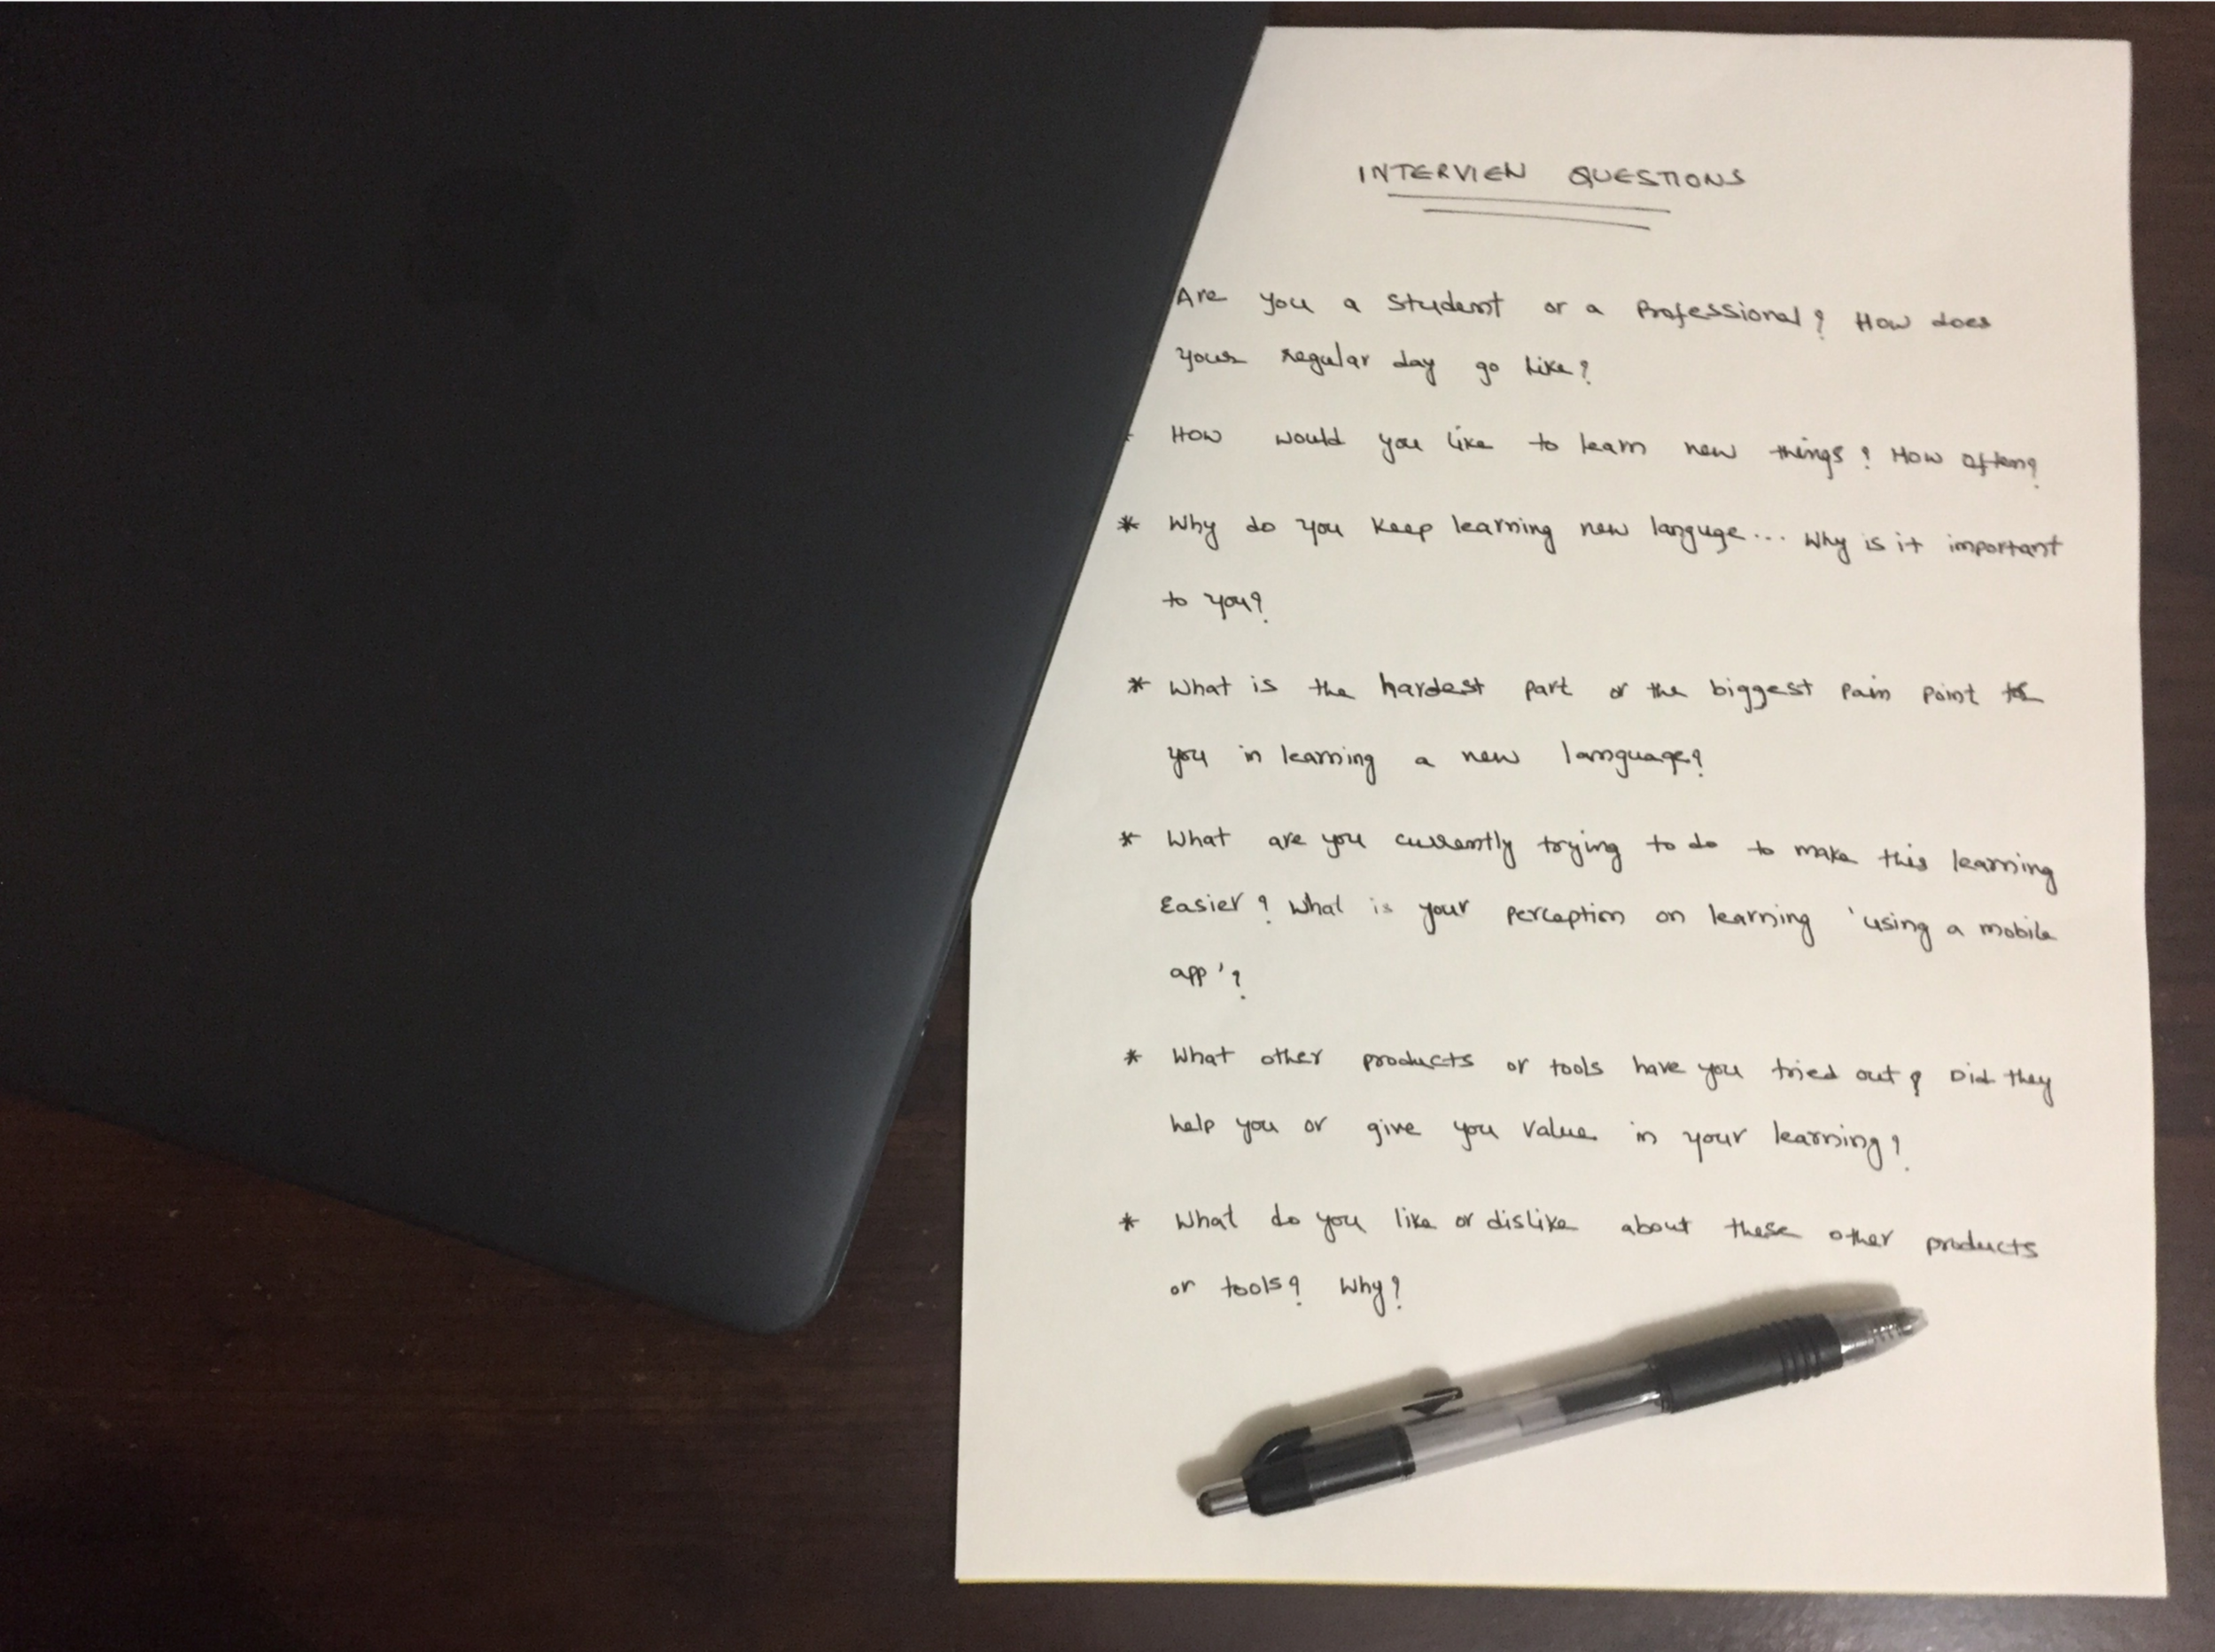 INTERVIEW QUESTIONS
Are you a student or a Professional? How does
your regular day go like?
* How would you like to learn new things? How often?
* Why do you keep learning new languge... Why is it important
to you?
* What is the hardest part or the biggest pain point to
you in learning a new language?
* What are you currently trying to do to make this learning
Easier? What is your perception on learning 'using a mobile
app'?
* What other products or tools have you tried out? Did they
help you or give you value in your learning?
* What do you like or dislike about these other products
or tools? Why?